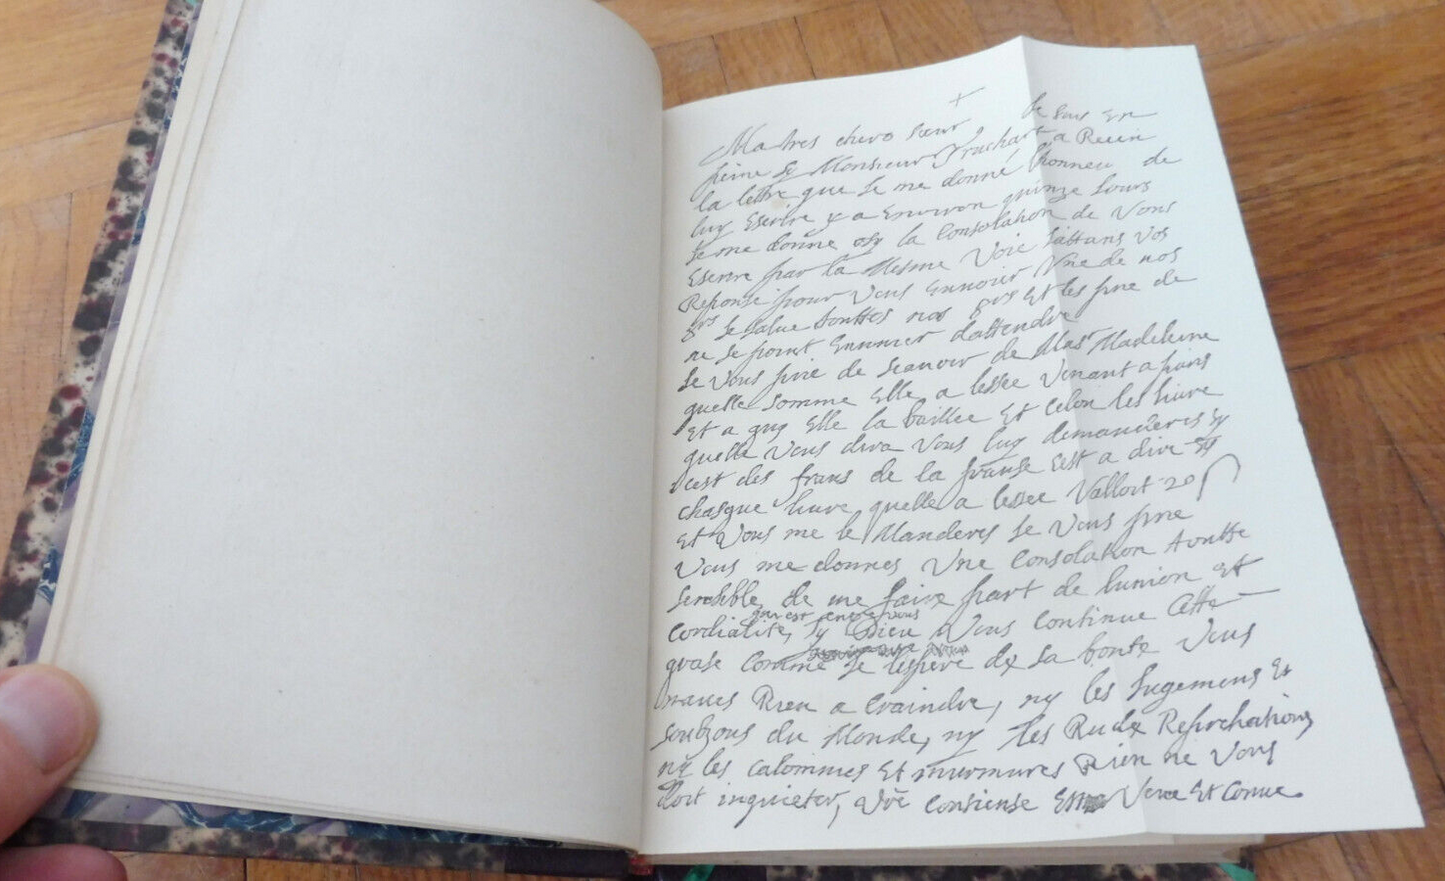 +
Ma tres chere sœur, Je suis En
peine sy Monsieur Truchart a Receu
la lettre que Je me donné lhonneu de
luy Escrire y a Environ quinze Jours
Je me donne osy la Consolation de Vous
Escrire par la Mesme Voie Jattans Vos
Reponse pour Vous Envoier Vne de nos
srs Je salue touttes nos srs Et les prie de
ne se point Ennuier dattendre
Je Vous prie de scauoir de Mas Madeleine
quelle somme Elle a lessée Venant a paris
Et a quy Elle la baillee Et Celon les liure
quelle Vous dira Vous luy demanderes sy
cest des frans de la franse Cest a dire sy
chasque liure quelle a lessee Valloit 20 s
Et Vous me le Manderes Je Vous prie
Vous me donnes Vne Consolation toutte
sensible de me faire part de lunion Et
Cordialite, quy est entre vous sy Dieu Vous Continue Cette
grase Comme Je lespere de sa bonte Vous
naues Rien a Craindre, ny les Jugemens Et
soubsons du Monde, ny les Rude Reprehations
ny les calomnies Et murmures Rien ne Vous
doit inquieter, Vre Consiense Vere Et Conue